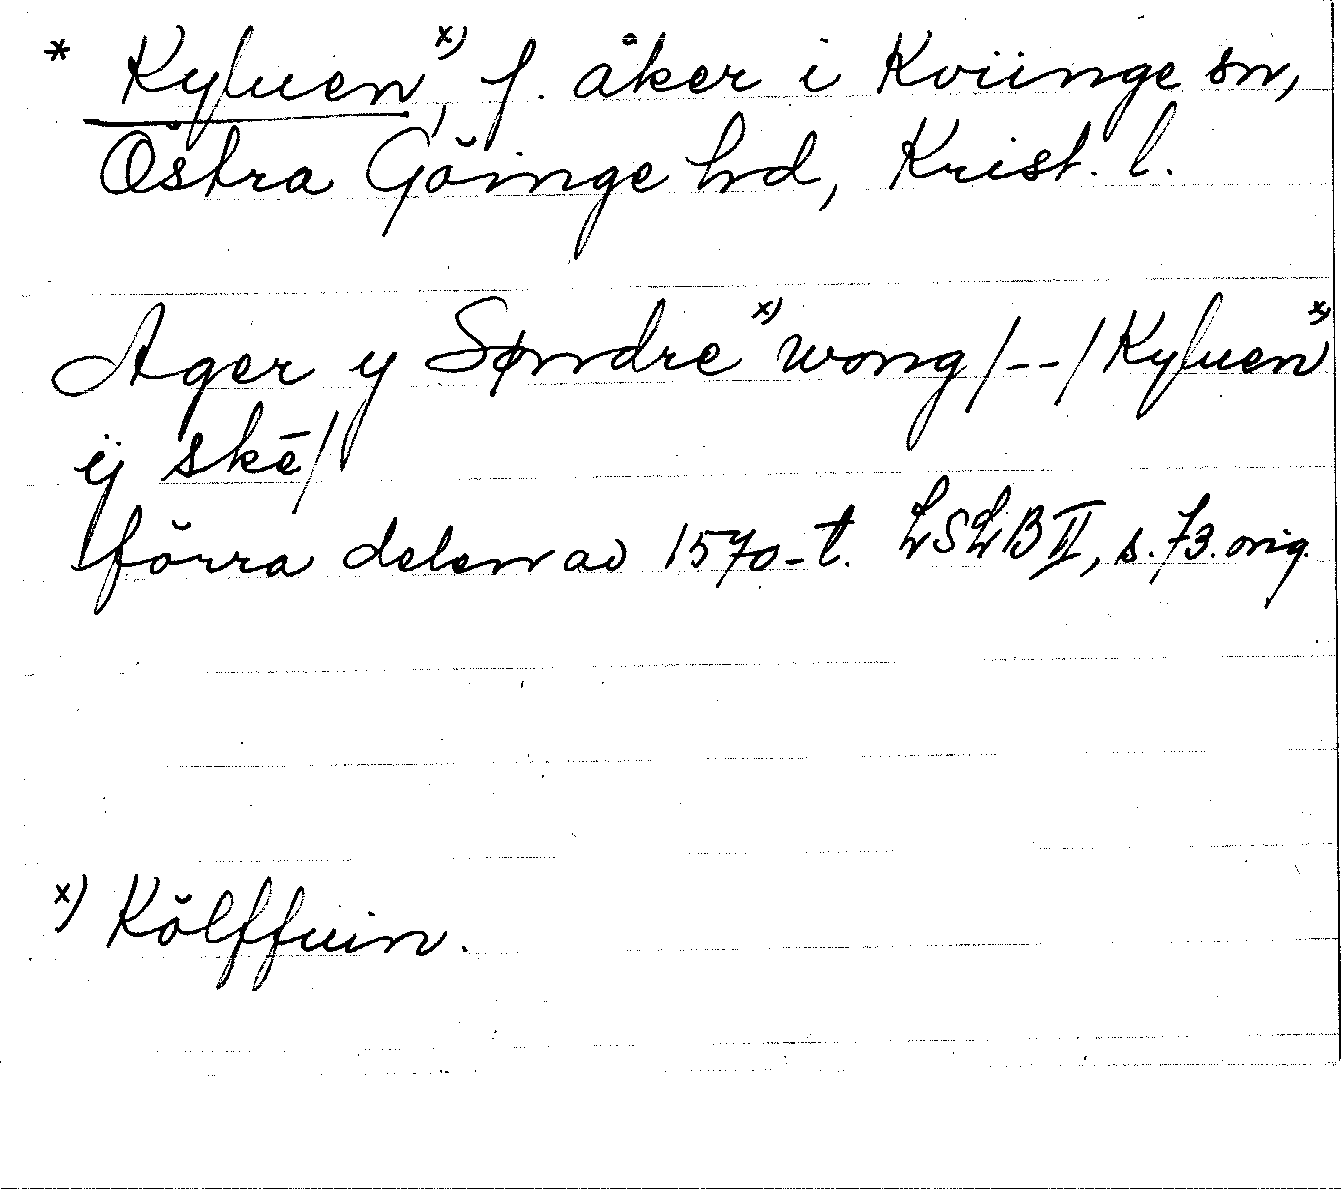 * Kyluen x), f. åker i Kviinge sn,
Östra Göinge hd, Krist. l.
Ager y Søndre x) wong /--/ Kyluen x)
ÿ skē/
förra delen av 1570-t. LSLB II, s. 73. orig.
x) Kölffuin.